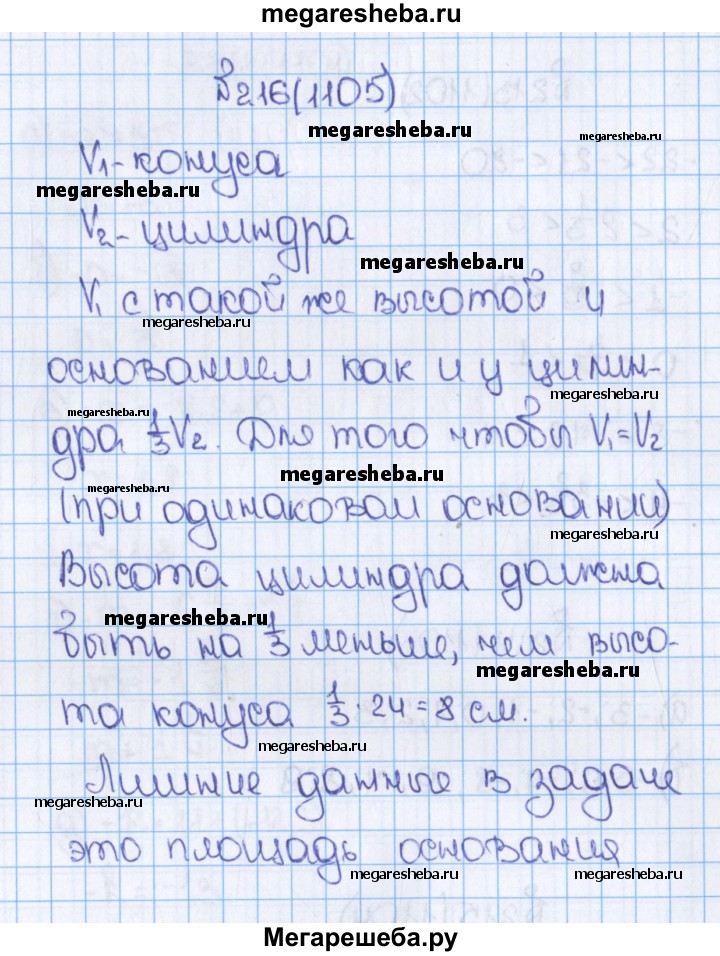 megaresheba.ru
№216(1105)
megaresheba.ru
megaresheba.ru
V₁-конуса
megaresheba.ru
V₂-цилиндра
megaresheba.ru
V₁ с такой же высотой и
megaresheba.ru
основанием как и у цилин-
megaresheba.ru
megaresheba.ru
дра 1/3 V₂. Для того чтобы V₁=V₂
megaresheba.ru
megaresheba.ru
(при одинаковом основании)
megaresheba.ru
Высота цилиндра должна
megaresheba.ru
быть на 1/3 меньше, чем высо-
megaresheba.ru
та конуса 1/3 · 24 = 8 см.
megaresheba.ru
Лишние данные в задаче
megaresheba.ru
это площадь основания
megaresheba.ru
megaresheba.ru
Мегарешеба.ру